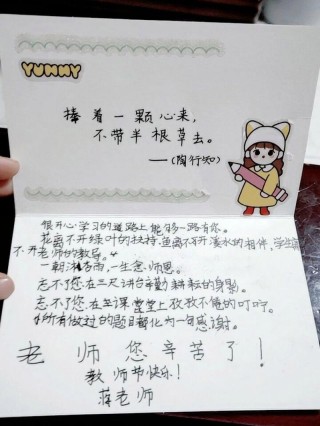 YUMMY
捧着一颗心来,
不带半根草去。
——(陶行知)
很开心学习的道路上能够一路有您。
花离不开绿叶的扶持,鱼离不开溪水的相伴,学生离
不开老师的教导。
一朝沐杏雨,一生念师恩。
忘不了您在三尺讲台辛勤耕耘的身影。
忘不了您在课堂上孜孜不倦的叮咛。
所有做过的题目都化为一句感谢。
老师您辛苦了!
教师节快乐!
蒋老师